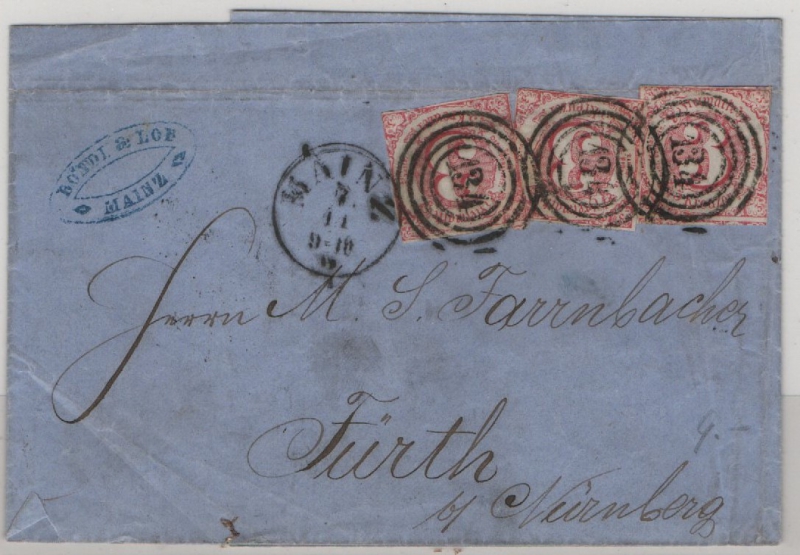 BONDI & LOB
MAINZ
MAINZ
11
9-10
134
134
134
Herrn M. S. Farrnbacher
Fürth
b/ Nürnberg
9.-